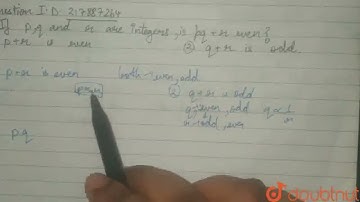 Question I.D. 217887264
If p,q and r are integers, is pq + r even?
p+r is even ② q+r is odd
p+r is even both → even, odd ② q+r is odd
q → even, odd
r → odd, even
pq
doubtnut